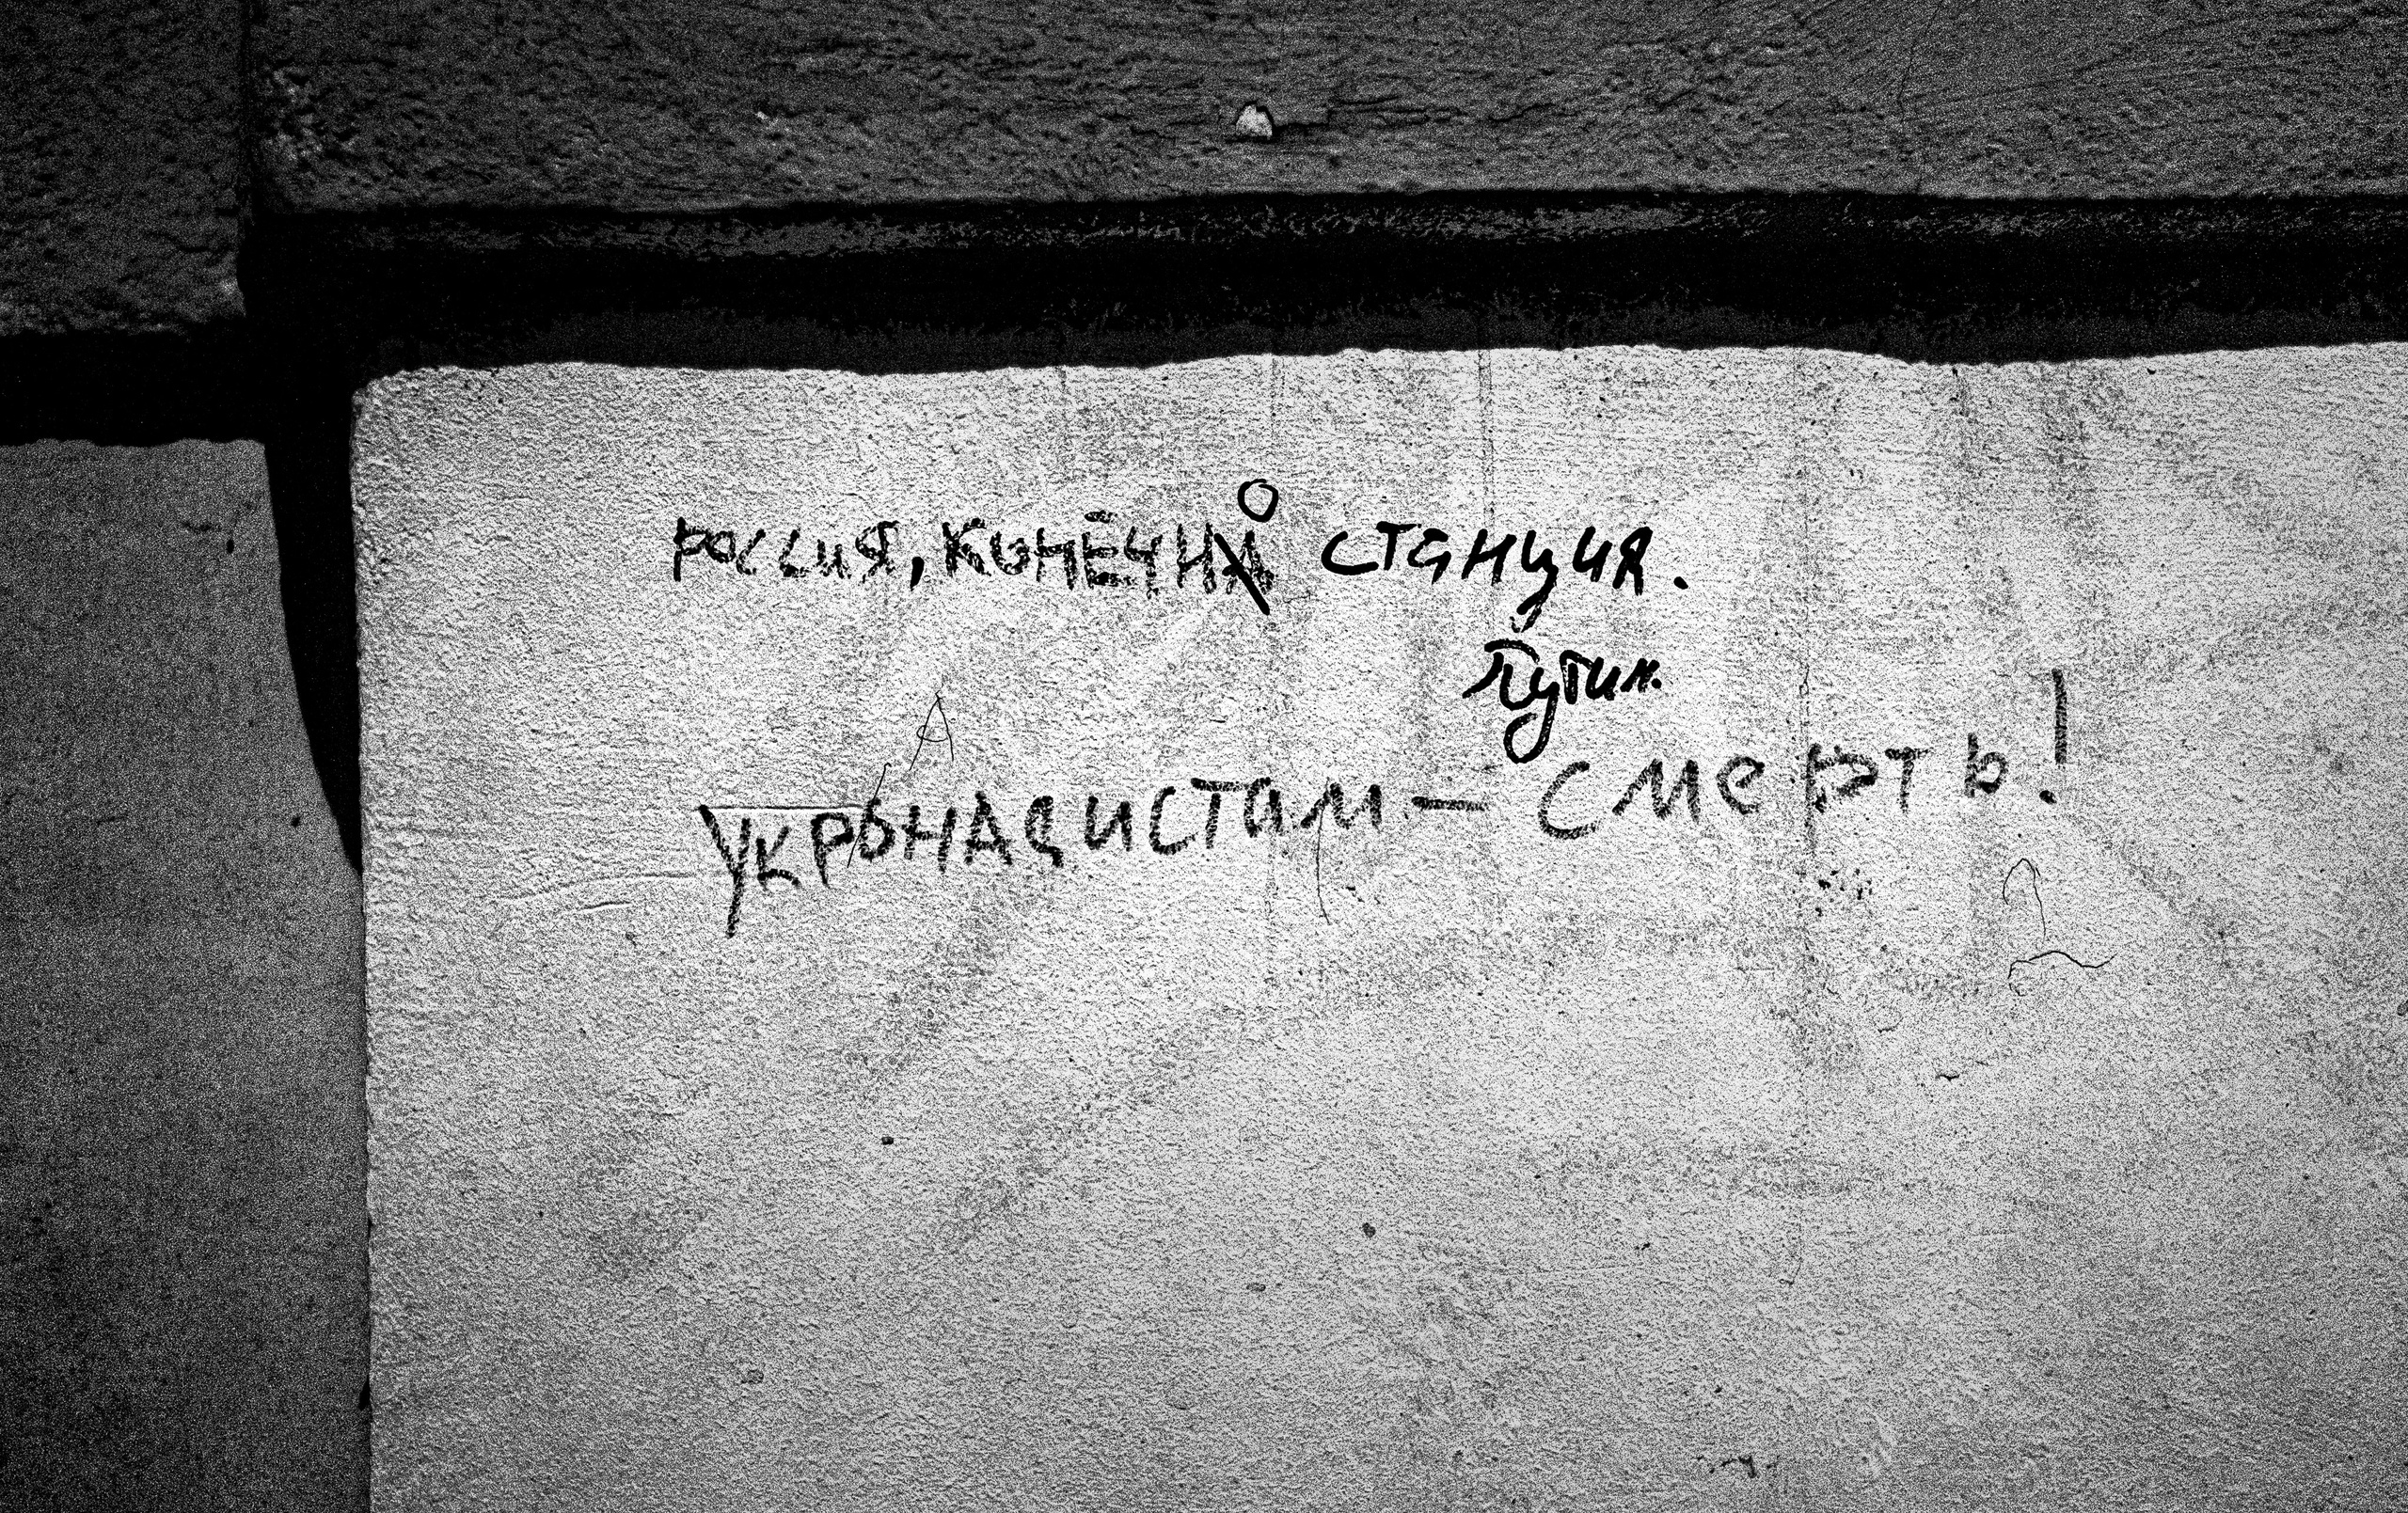 РОССИЯ, КОНЕЧНО СТАНЦИЯ.
Путин.
УКРОНАЦИСТАМ — СМЕРТЬ!